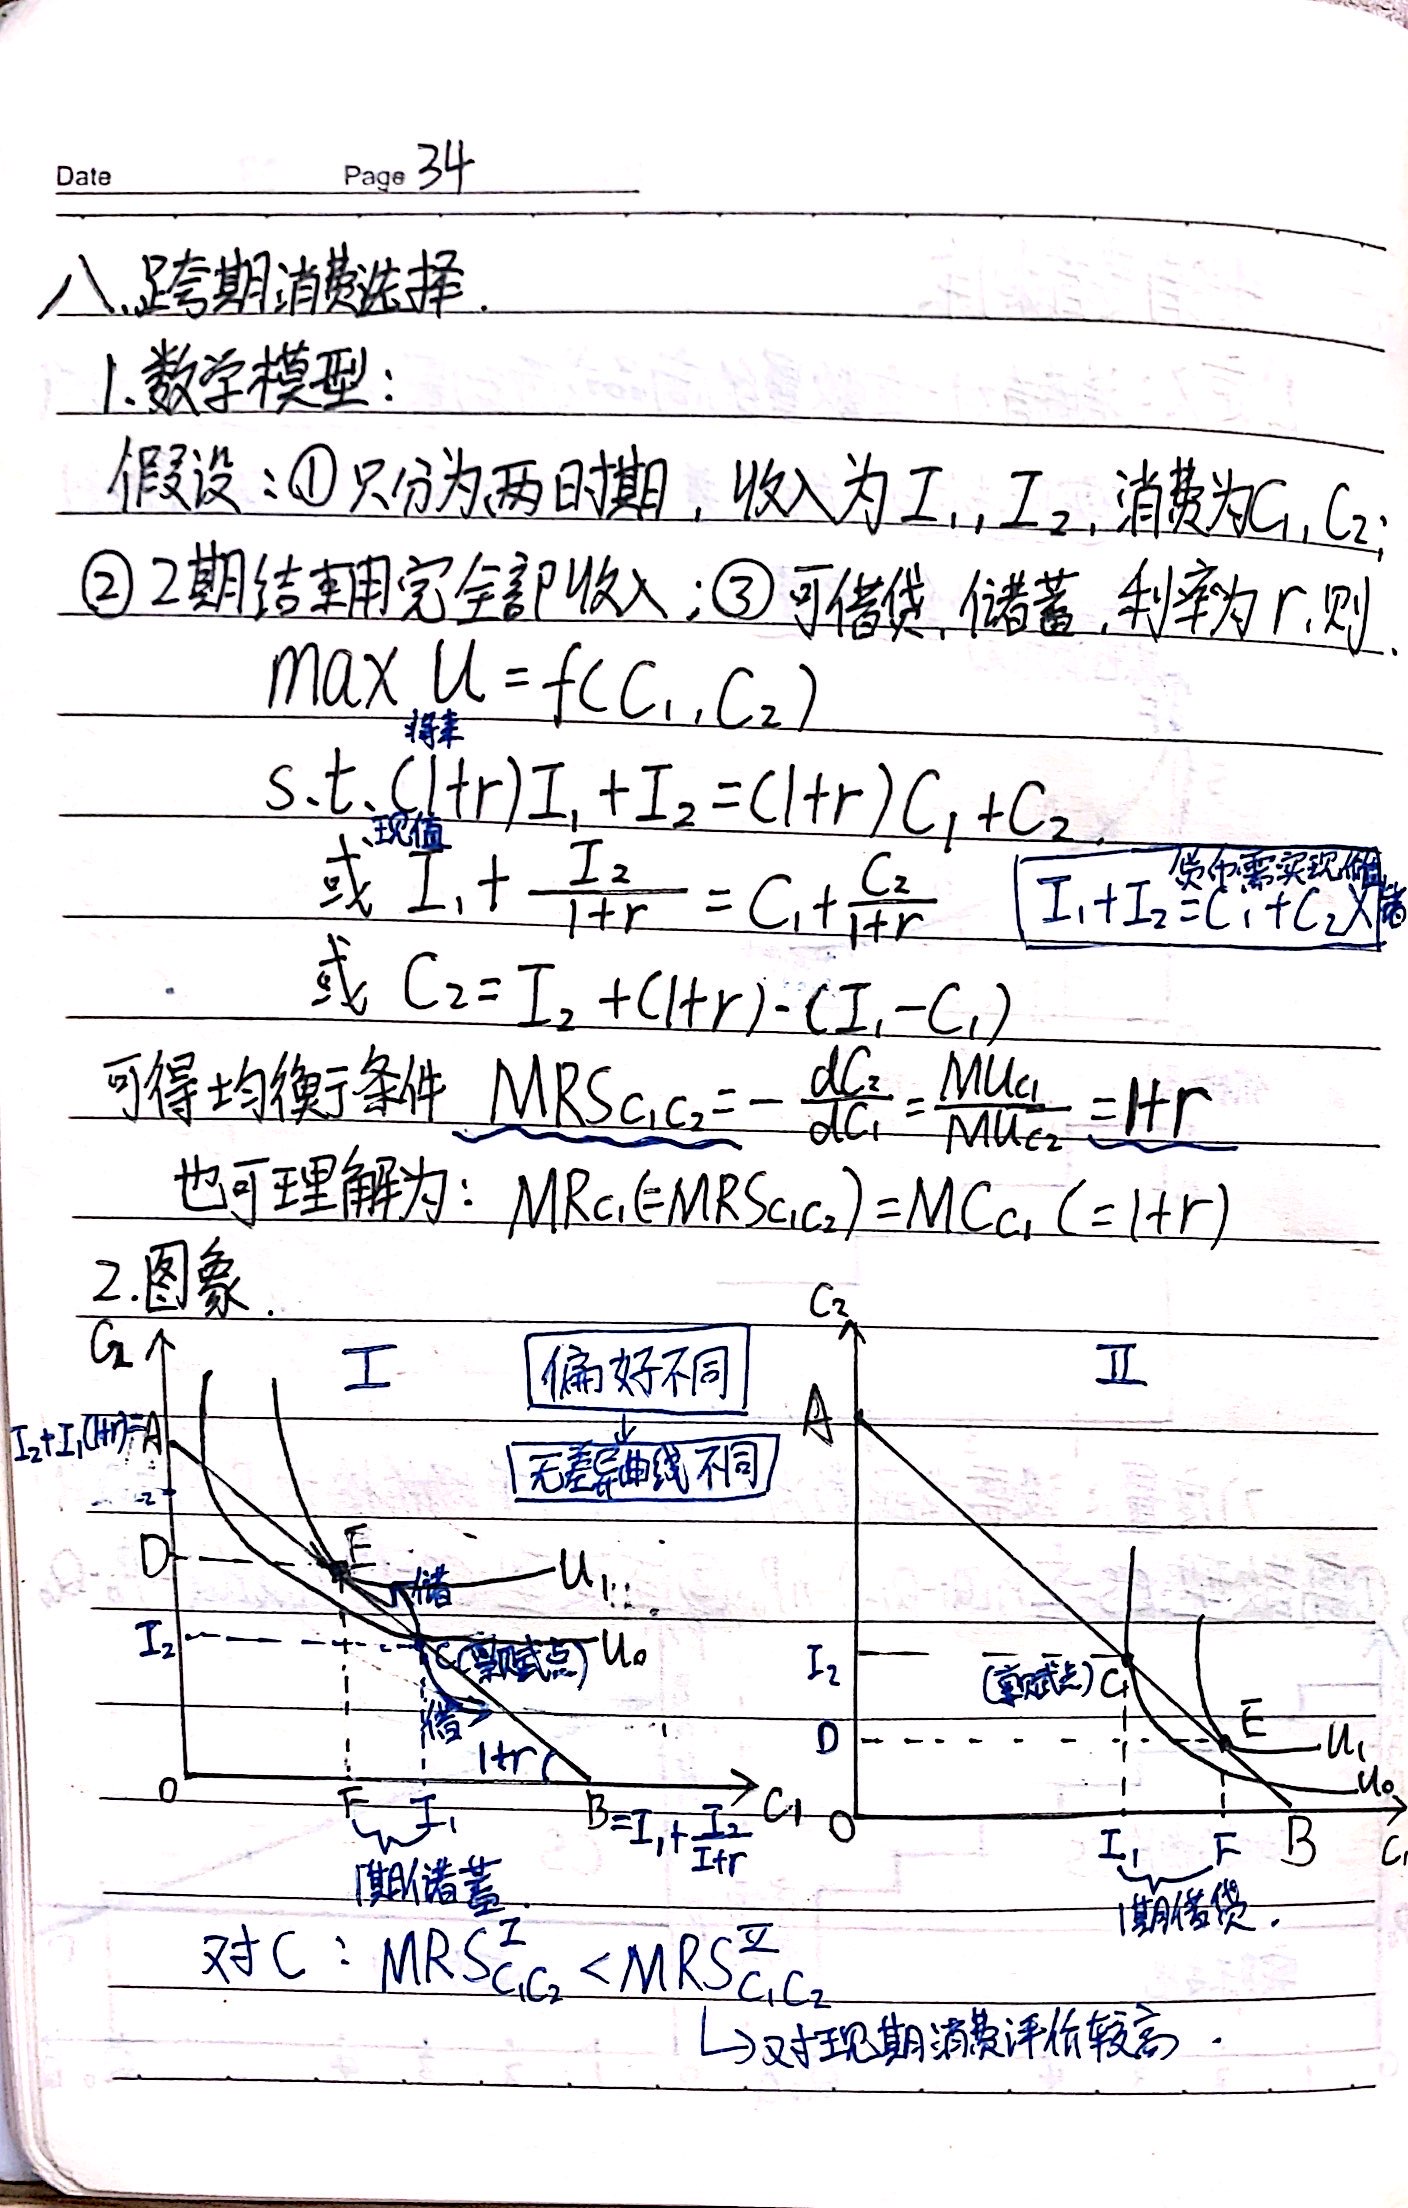 Date Page 34
八、跨期消费选择.
1.数学模型:
假设:①只分为两时期,收入为I₁,I₂,消费为C₁,C₂;
②2期结束用完全部收入;③可借贷,储蓄,利率为r,则
max U=f(C₁,C₂)
将来
s.t.(1+r)I₁+I₂=(1+r)C₁+C₂.
现值
或 I₁+I₂/(1+r)=C₁+C₂/(1+r)
货币需实现值
I₁+I₂=C₁+C₂X
或 C₂=I₂+(1+r)·(I₁-C₁)
可得均衡条件 MRSc₁c₂=-dC₂/dC₁=MUc₁/MUc₂=1+r
也可理解为: MRc₁(=MRSc₁c₂)=MCc₁(=1+r)
2.图象.
C₂ I
I₂+I₁(1+r)=A
D E U₁
储
I₂ C(禀赋点) U₀
借
1+r
O F I₁ B=I₁+I₂/(1+r) C₁
1期储蓄.
偏好不同
↓
无差异曲线不同
C₂ II
A
I₂ (禀赋点)C
D E U₁
U₀
O I₁ F B C₁
1期借贷.
对C: MRS^I c₁c₂<MRS^II c₁c₂
↳对现期消费评价较高.